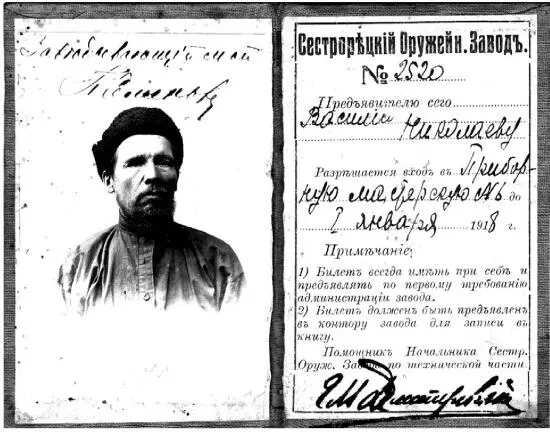 Завѣдывающій
Сестрорѣцкій Оружейн. Заводъ.
№ 2520
Предъявителю сего
Василію Николаеву
Разрѣшается входъ въ Прибор-
ную мастерскую до
1 января 1918 г.
Примѣчаніе:
1) Билетъ всегда имѣть при себѣ и
предъявлять по первому требованію
администраціи завода.
2) Билетъ долженъ быть предъявленъ
въ контору завода для записи въ
книгу.
Помощникъ Начальника Сестр.
Оруж. Зав. по технической части